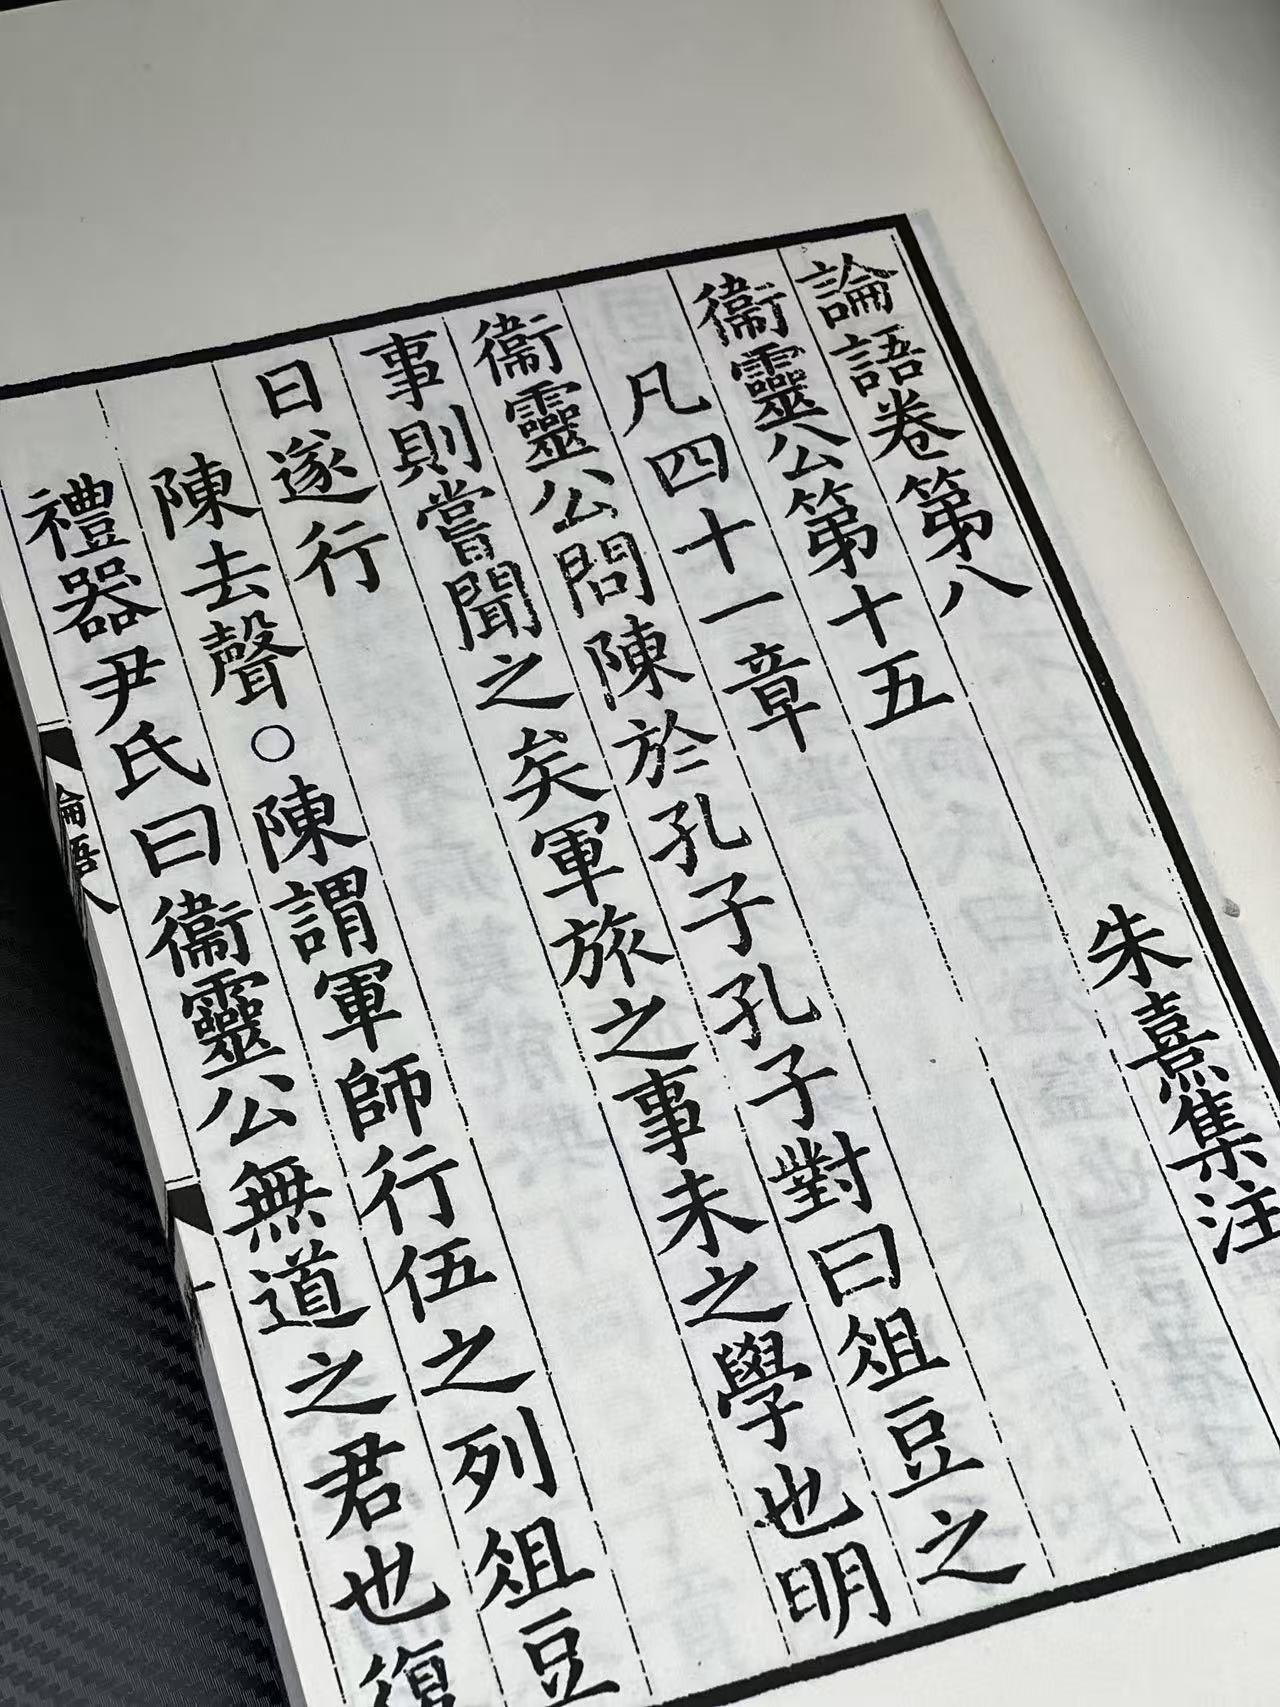 論語卷第八
朱熹集注
衞靈公第十五
凡四十一章
衞靈公問陳於孔子孔子對曰俎豆之
事則嘗聞之矣軍旅之事未之學也明
日遂行
陳去聲○陳謂軍師行伍之列俎豆
禮器尹氏曰衞靈公無道之君也復
論語八